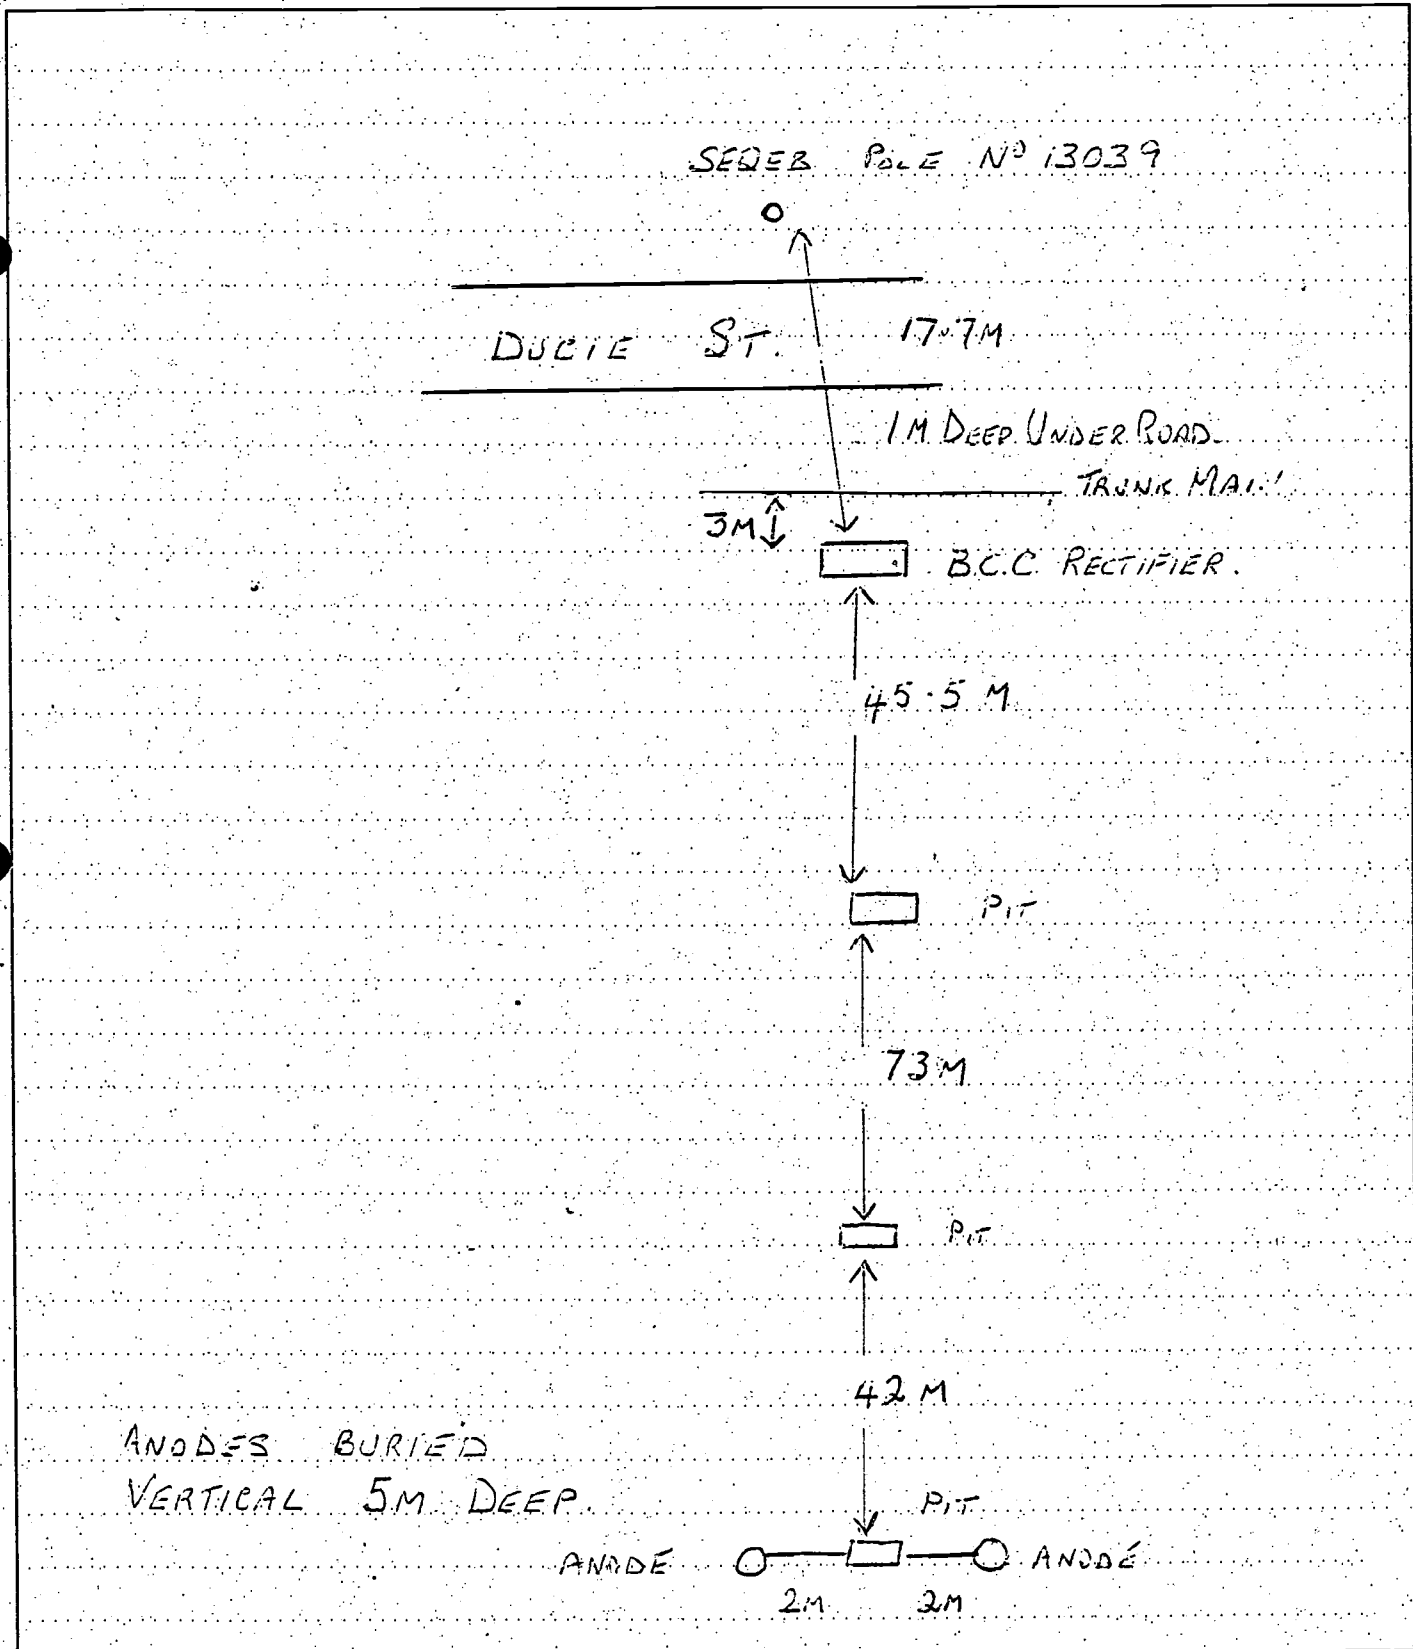 SEQEB POLE Nº 13039
DUCIE ST.
17.7M
1M DEEP UNDER ROAD.
TRUNK MAIN
3M
B.C.C. RECTIFIER.
45.5 M
PIT
73M
PIT
42 M
ANODES BURIED
VERTICAL 5M DEEP.
PIT
ANODE
ANODE
2M
2M